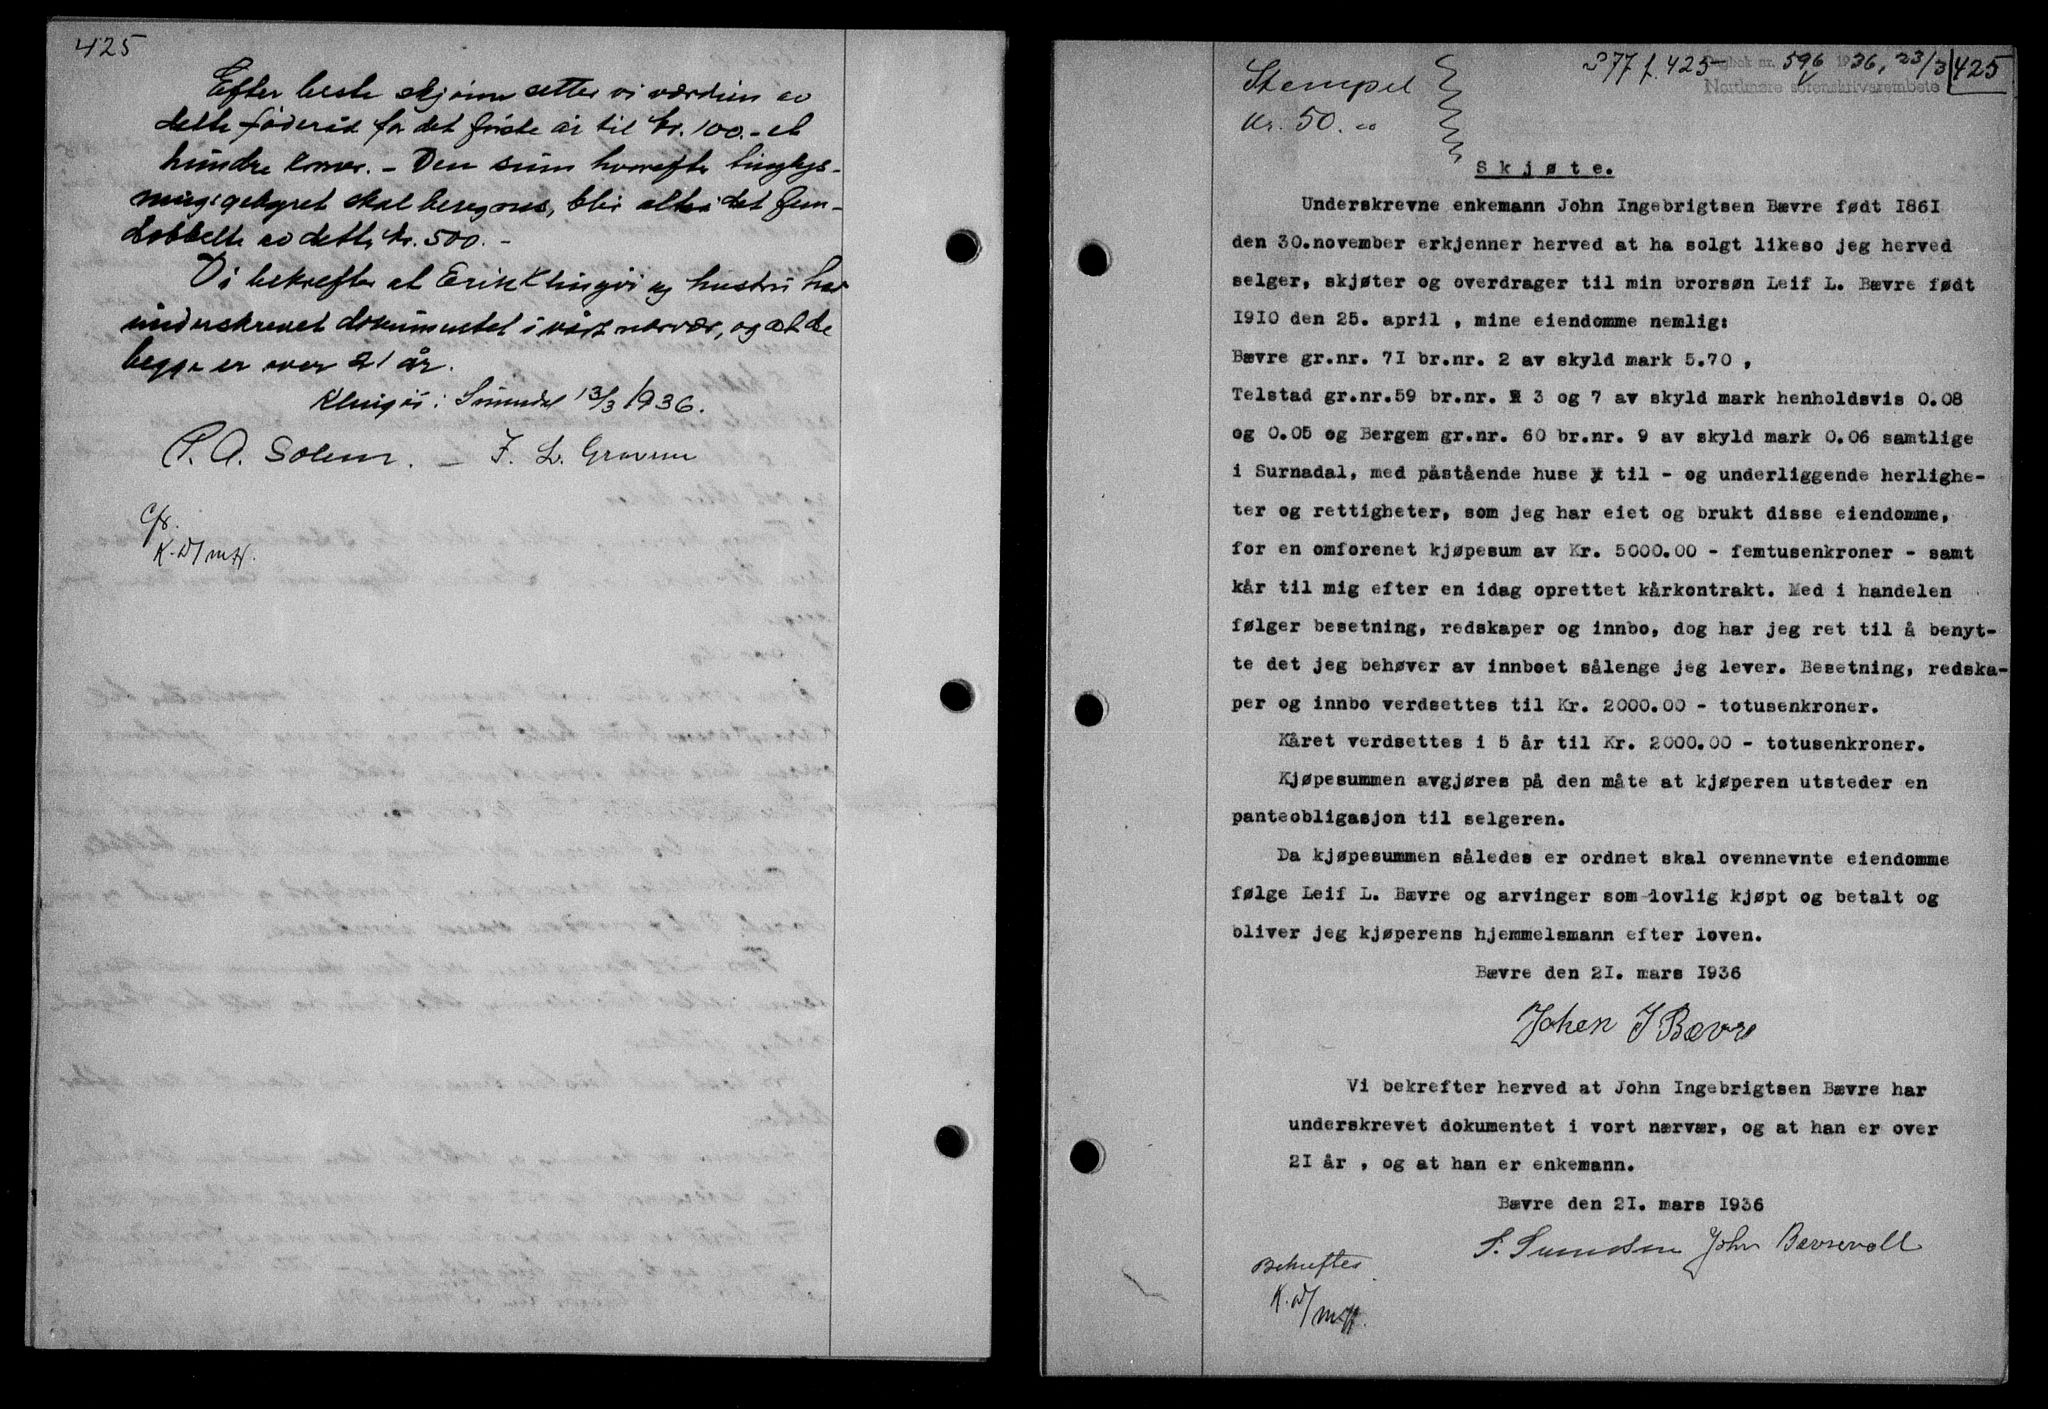 425
Efter beste skjønn setter vi værdien av
dette føderåd for det første år til kr. 100.- et
hundre kroner. - Den sum hvorefter tinglys-
ningsgebyret skal beregnes, blir altså det fem-
dobbelte av dette kr. 500.-
Vi bekrefter at Erik Klingøi og hustru har
underskrevet dokumentet i vårt nærvær, og at de
begge er over 21 år.
Klingøi i Surendal 13/3 1936.
P. A. Solem. - F. L. Gravem
K. W/
Stempel
Kr. 50.00
377 f. 425 Dagbok nr. 596 1936, 23/3 425
Nordmøre sorenskriverembete
Skjøte.
Underskrevne enkemann John Ingebrigtsen Bævre født 1861
den 30.november erkjenner herved at ha solgt likeso jeg herved
selger, skjøter og overdrager til min brorsøn Leif L. Bævre født
1910 den 25. april , mine eiendomme nemlig:
Bævre gr.nr. 71 br.nr. 2 av skyld mark 5.70 ,
Telstad gr.nr.59 br.nr. 3 og 7 av skyld mark henholdsvis 0.08
og 0.05 og Bergem gr.nr. 60 br.nr. 9 av skyld mark 0.06 samtlige
i Surnadal, med påstående huse til - og underliggende herlighe-
ter og rettigheter, som jeg har eiet og brukt disse eiendomme,
for en omforenet kjøpesum av Kr. 5000.00 - femtusenkroner - samt
kår til mig efter en idag oprettet kårkontrakt. Med i handelen
følger besetning, redskaper og innbo, dog har jeg ret til å benyt-
te det jeg behøver av innboet sålenge jeg lever. Besetning, redska-
per og innbo verdsettes til Kr. 2000.00 - totusenkroner.
Kåret verdsettes i 5 år til Kr. 2000.00 - totusenkroner.
Kjøpesummen avgjøres på den måte at kjøperen utsteder en
panteobligasjon til selgeren.
Da kjøpesummen således er ordnet skal ovennevnte eiendomme
følge Leif L. Bævre og arvinger som lovlig kjøpt og betalt og
bliver jeg kjøperens hjemmelsmann efter loven.
Bævre den 21. mars 1936
Johen I Bævre
Vi bekrefter herved at John Ingebrigtsen Bævre har
underskrevet dokumentet i vort nærvær, og at han er over
21 år , og at han er enkemann.
Bævre den 21. mars 1936
John Bævrevoll
Bekreftes
K. W/